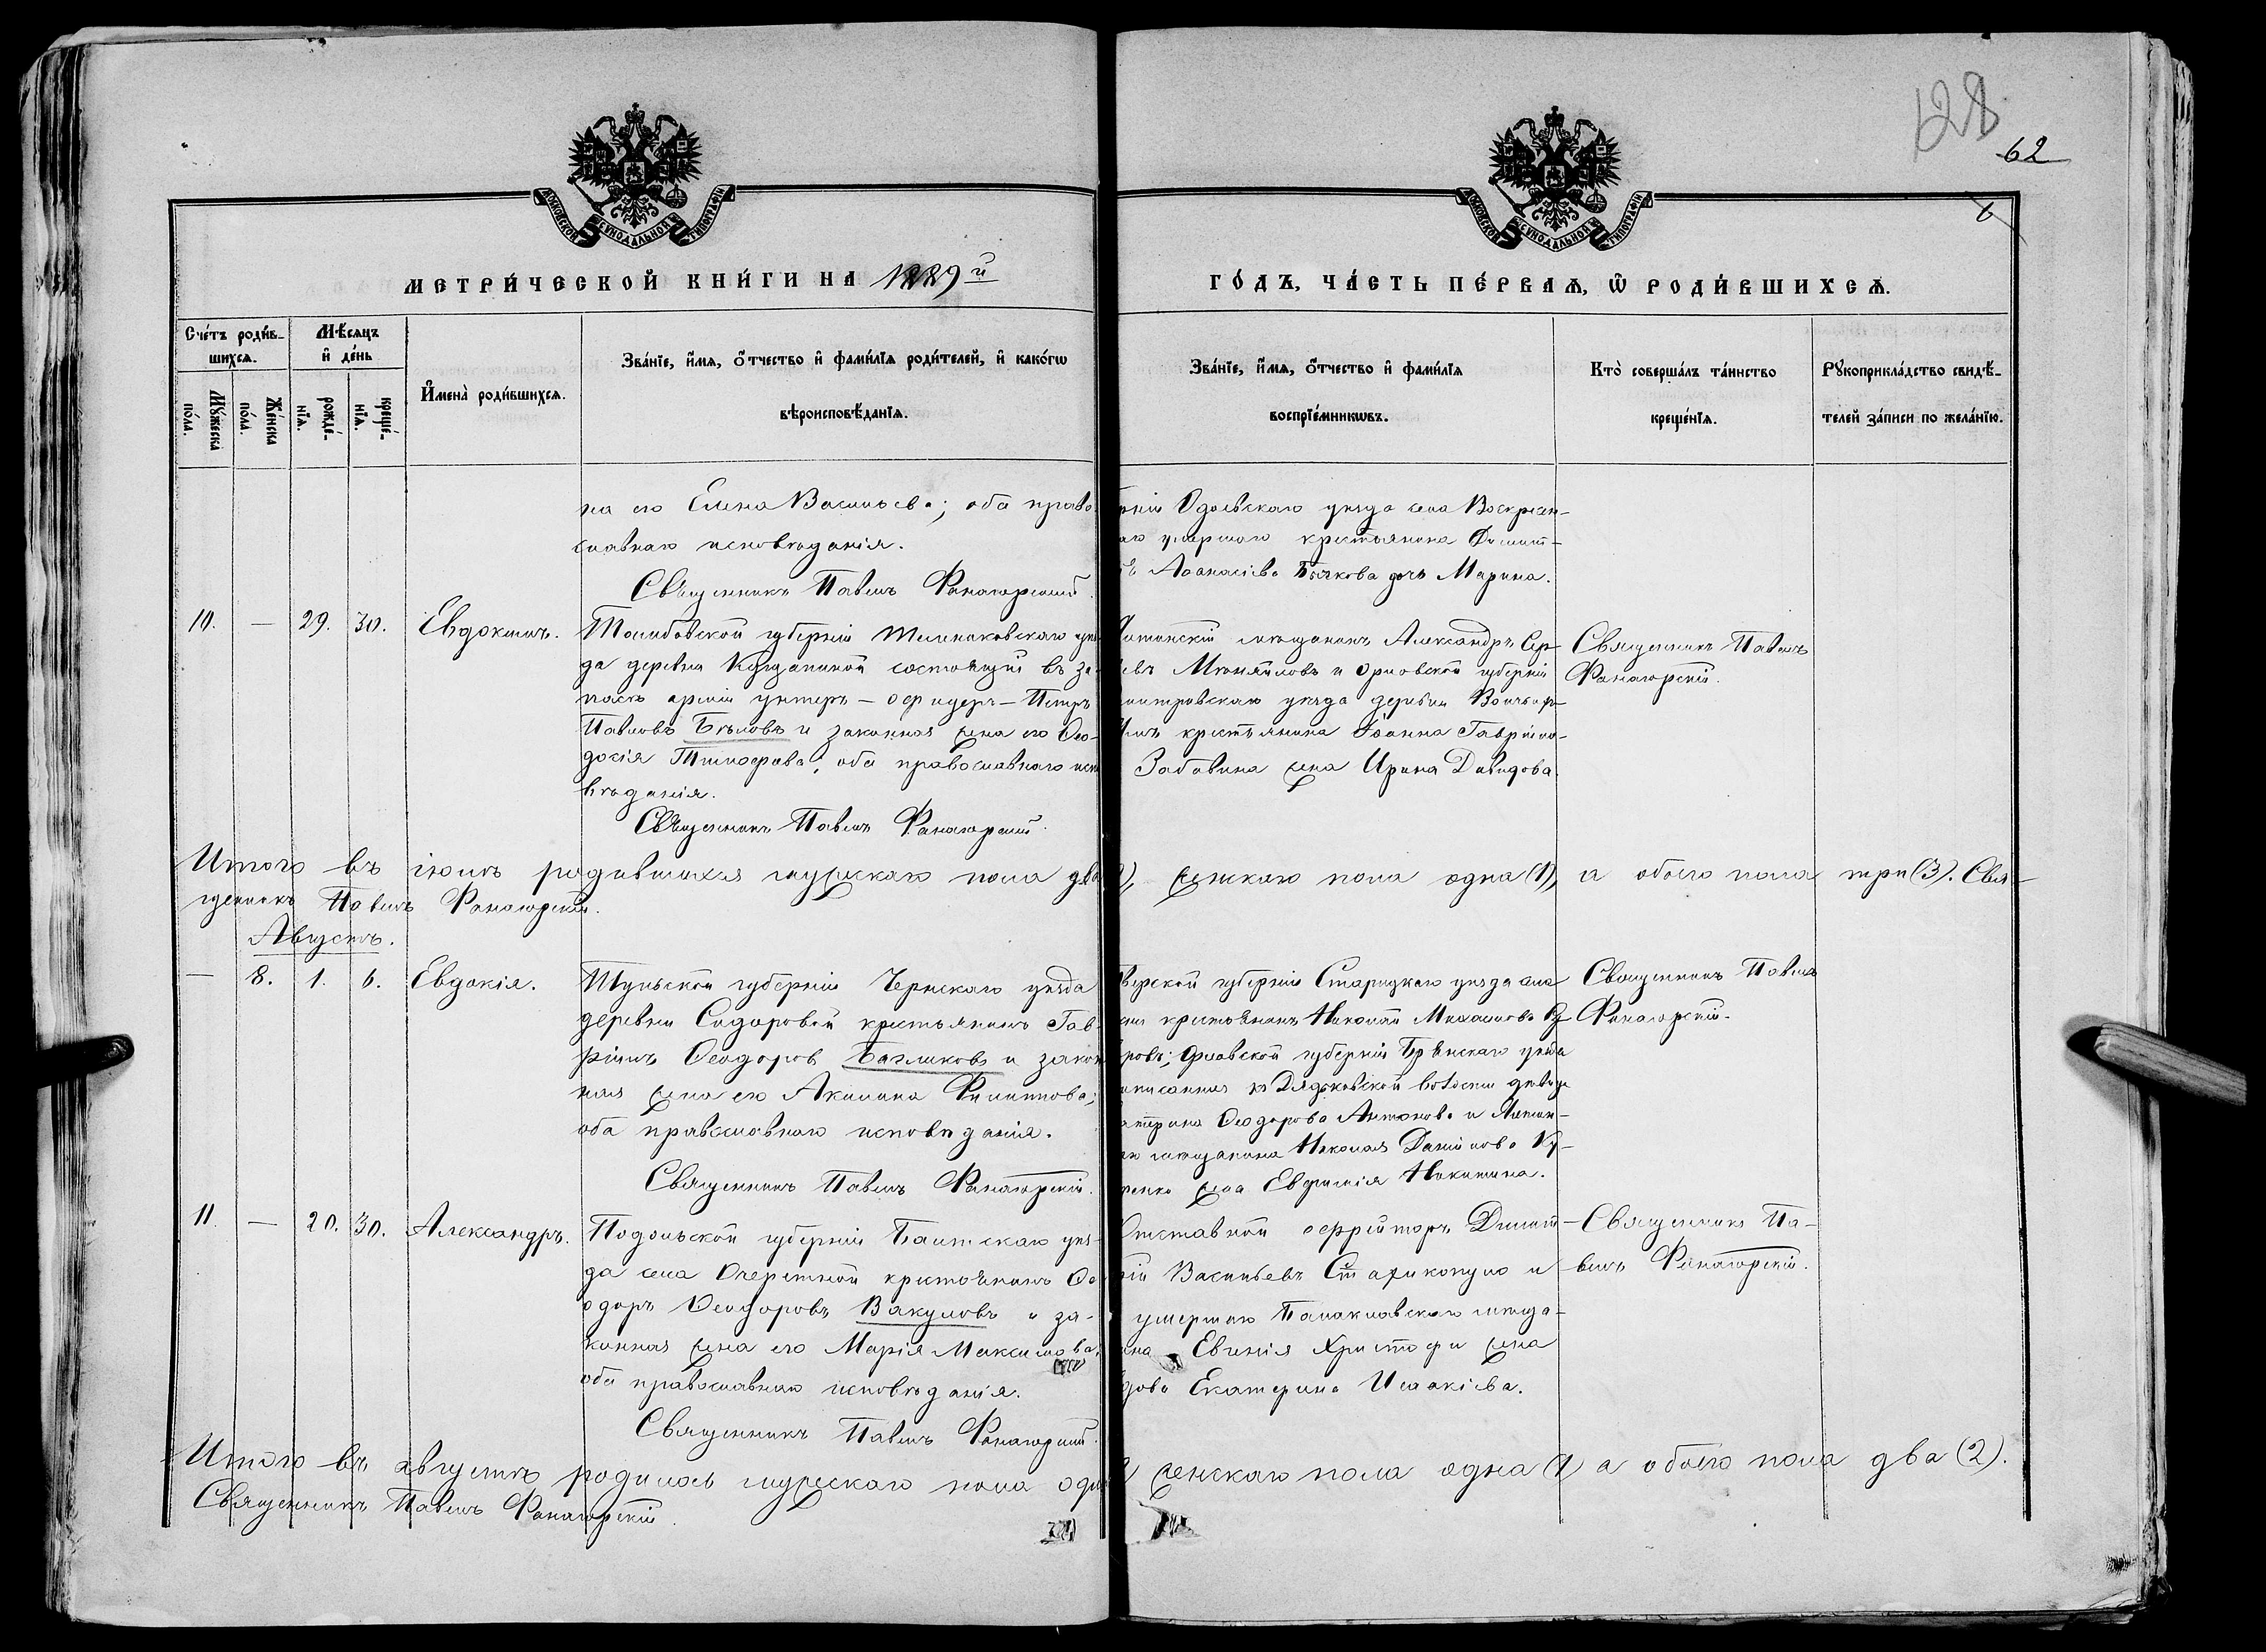 128
62
6
МОСКОВСКОЙ СѴНОДАЛЬНОЙ ТИПОГРАФІИ
МОСКОВСКОЙ СѴНОДАЛЬНОЙ ТИПОГРАФІИ
МЕТРИ́ЧЕСКОЙ КНИ́ГИ НА 1889й
ГО́ДЪ, ЧА́СТЬ ПЕ́РВАѦ, Ѡ РОДИ́ВШИХСѦ.
Сче́тъ роди́в-
шихсѧ.
Мꙋ́жеска по́ла.
Же́нска по́ла.
Мѣ́сѧцъ
и҆ де́нь
рожде́-
нїѧ.
креще́-
нїѧ.
И҆мена̀ роди́вшихсѧ.
Зва́нїе, и҆́мѧ, ѻ҆́тчество и҆ фами́лїѧ роди́телей, и҆ како́гѡ
вѣроисповѣ́данїѧ.
Зва́нїе, и҆́мѧ, ѻ҆́тчество и҆ фами́лїѧ
воспрїе́мникѡвъ.
Кто̀ соверша́лъ та́инство
креще́нїѧ.
Рꙋкоприкла́дство свидѣ́-
телей за́писи по жела́нїю.
на его Елена Васильева; оба право
славнаго исповѣданія.
Священникъ Павелъ Фанагорскій.
рніи Одоевскаго уѣзда села Воскресен-
аго умершаго крестьянина Димит-
Аѳанасіева Бычкова дочь Марина.
10. — 29. 30. Евдокимъ.
Тамбовской губерніи уѣз
да деревни состоящій въ за-
пасѣ арміи унтеръ-офицеръ Петръ
Павловъ Бѣловъ и законная жена его Ѳео-
досія Тимоѳеева; оба православнаго испо
вѣданія.
Священникъ Павелъ Фанагорскій.
мѣщанинъ Александръ Сер-
евъ и Орловской губерніи
митровскаго уѣзда деревни
крестьянина Іоанна Гавріило-
Забавина жена Ирина Давидова.
Священникъ Павелъ
Фанагорскій.
Итого въ іюлѣ родившихся мужскаго пола два
), женскаго пола одна (1), а обоего пола три (3). Свя-
щенникъ Павелъ Фанагорскій.
Августъ.
— 8. 1. 6. Евдокія.
Тульской губерніи Чернскаго уѣзда
деревни Сидоровой крестьянинъ Гав-
ріилъ Ѳеодоровъ и закон
ная жена его Акилина Филиппова;
оба православнаго исповѣданія.
Священникъ Павелъ Фанагорскій.
верской губерніи Старицкаго уѣзда села
крестьянинъ Николай Михаиловъ
ровъ; Орловской губерніи Брянскаго уѣзда
приписанная къ Дядьковской волости дѣвица
атерина Ѳеодорова Антонова и
мѣщанина Николая Даніилова Ку-
ренко жена Евфимія Никитина.
Священникъ Павелъ
Фанагорскій.
11. — 20. 30. Александръ.
Подольской губерніи Балтскаго уѣз-
да села Очеретной крестьянинъ Ѳе-
одоръ Ѳеодоровъ Вакуловъ и за-
конная жена его Марія Максимова;
оба православнаго исповѣданія.
Священникъ Павелъ Фанагорскій.
Отставной ефрейторъ Димит-
рій Васильевъ Старикопуло и
умершаго Балаклавскаго мѣща-
ина Евгенія Христофи жена
дова Екатерина Исаакіева.
Священникъ Па-
велъ Фанагорскій.
Итого въ августѣ родилось мужескаго пола оди
женскаго пола одна (1) а обоего пола два (2).
Священникъ Павелъ Фанагорскій.